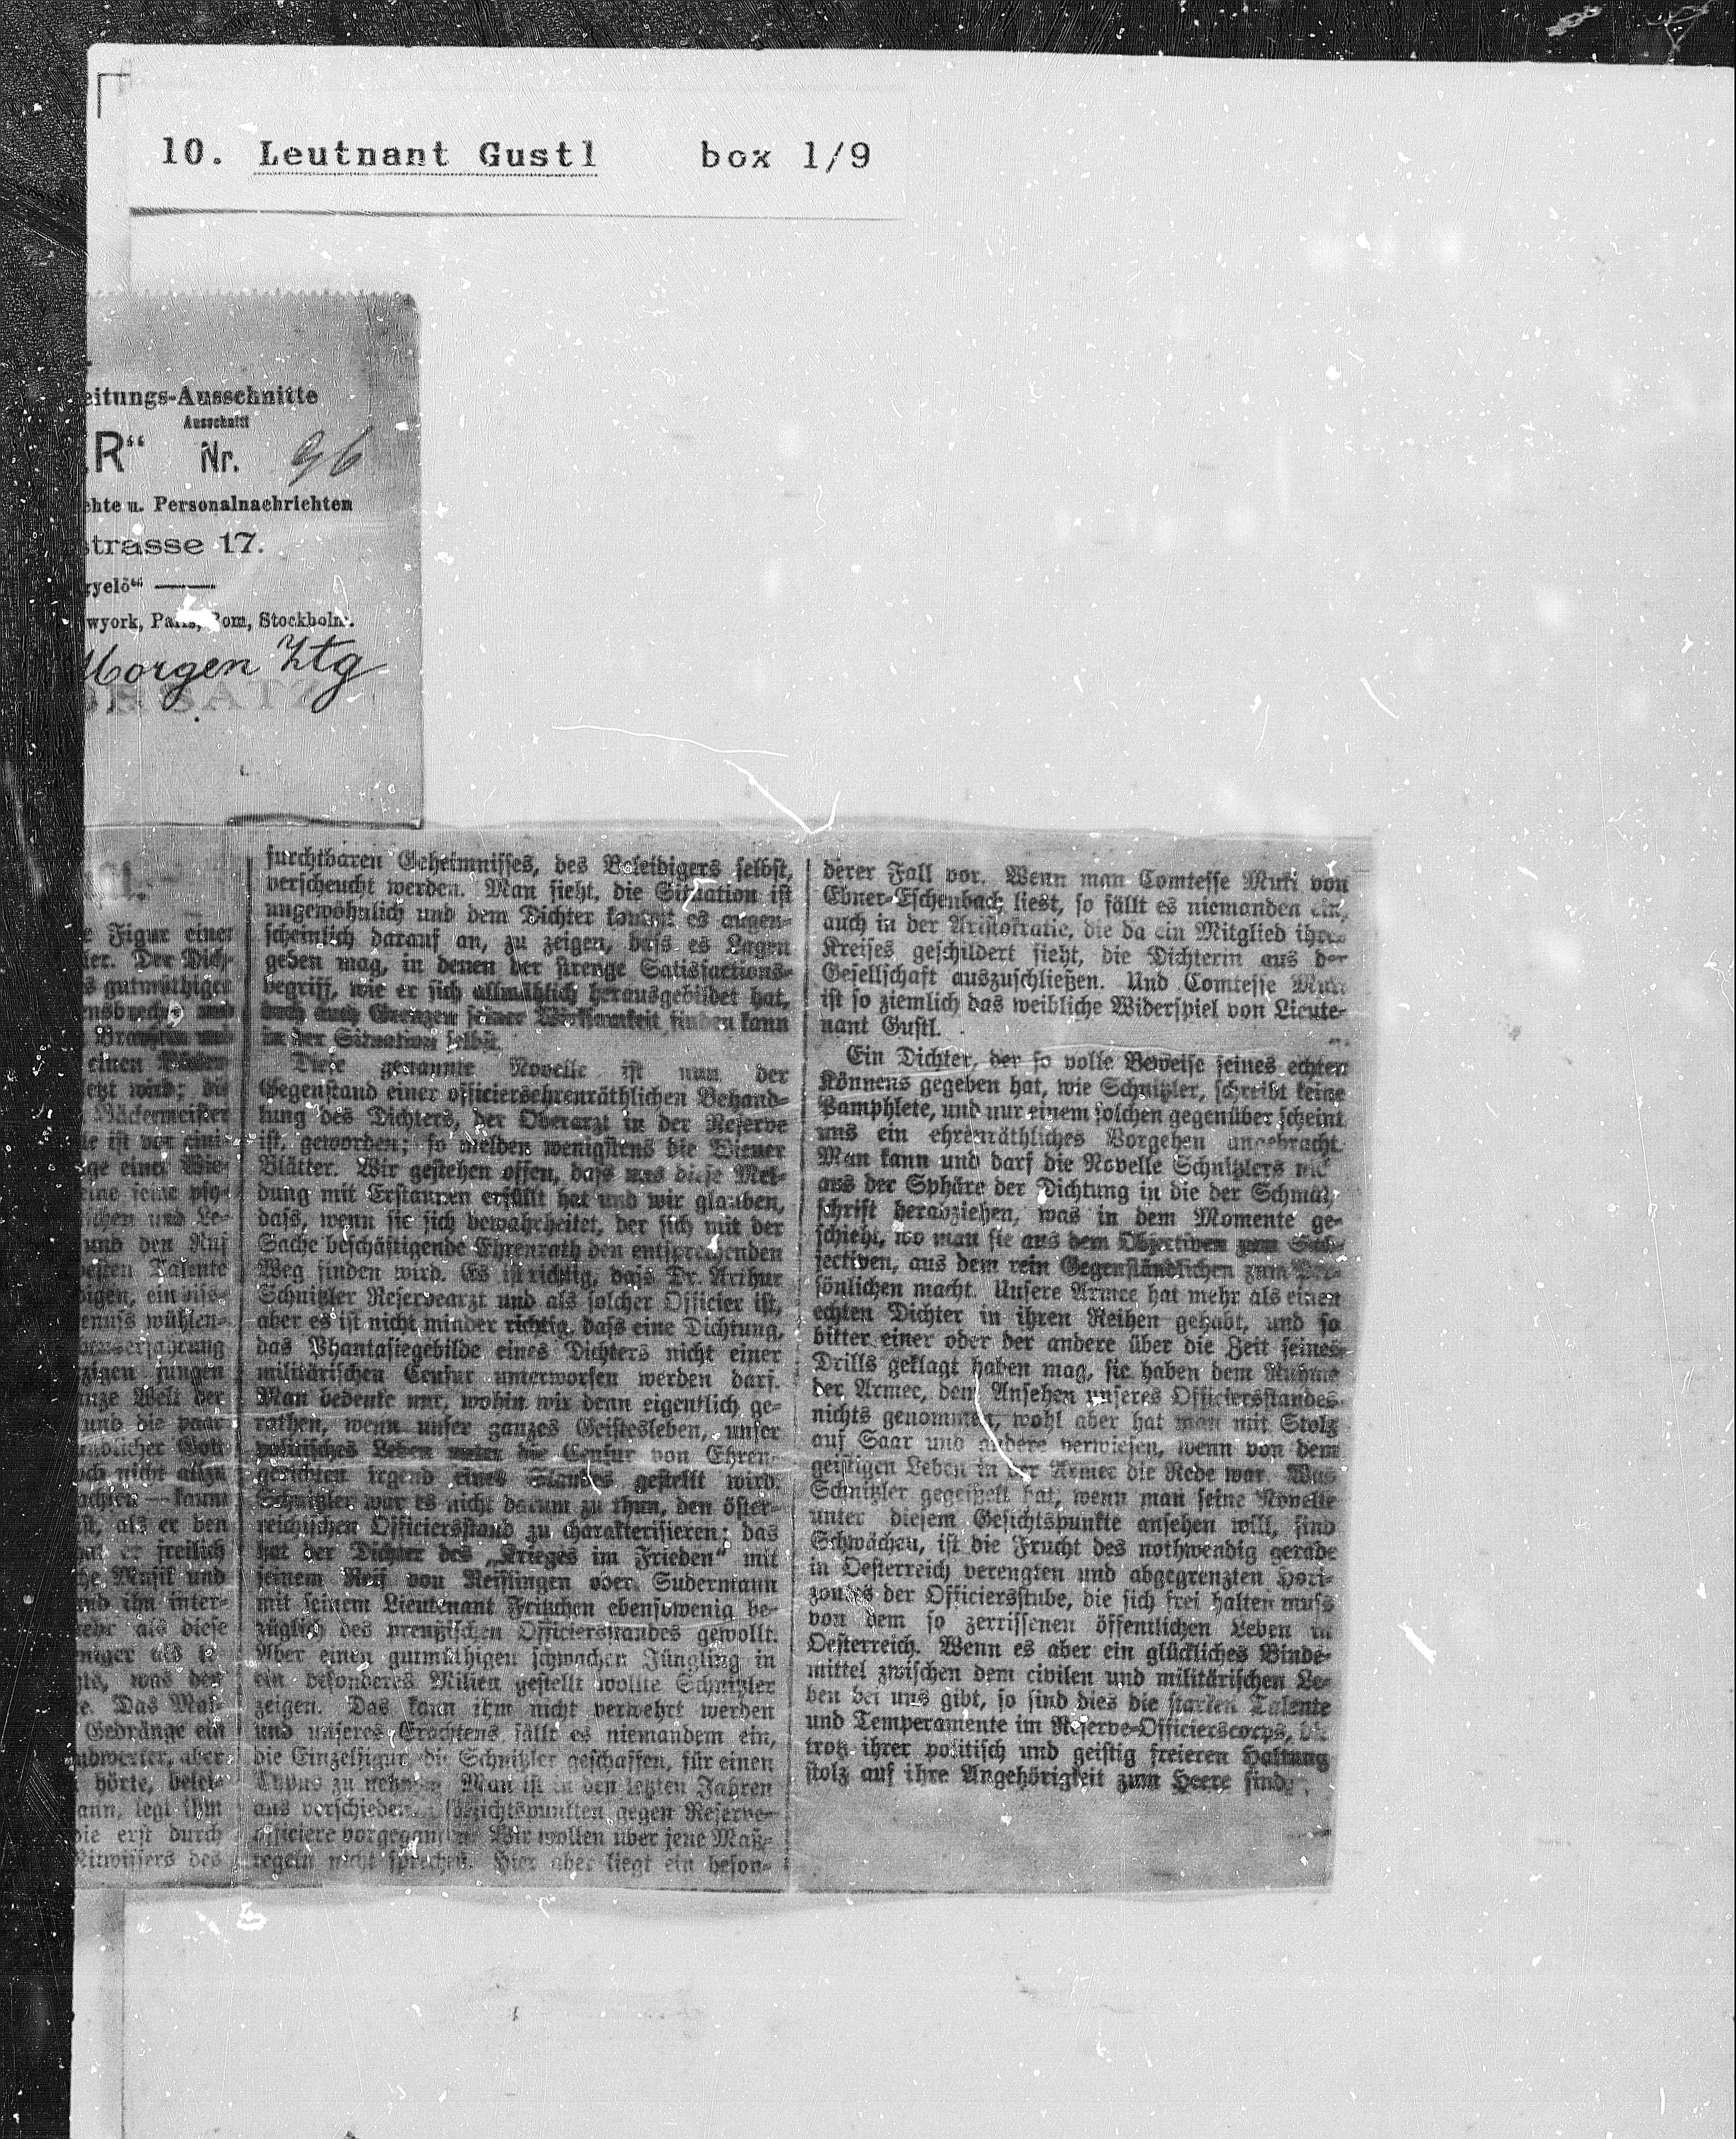 10. Leutnant Gustl box 1/9
eitungs-Ausschnitte
Ausschnitt
R“ Nr. 96
chte u. Personalnachrichten
strasse 17.
gyelö“
wyork, Paris, Rom, Stockholm.
Morgen Ztg
e Figur einer
ier. Der Dich-
s gutmüthigen
und
einen
letzt wird; die
Bäckermeister
ge einer
eine feine psy-
ischen und Le-
und den Ruf
besten Talente
enuss wühlen-
zigen jungen
anze Welt der
und die paar
och nicht allzu
achten — kaum
ist, als er den
hat er freilich
he Musik und
und ihn inter-
mehr als diese
eniger als le-
was der
e. Das Mal-
Gedränge ein
ndwerker, aber
hörte, belei-
ann, legt ihm
die erst durch
Mitwissers des
furchtbaren Geheimnisses, des Beleidigers selbst,
verscheucht werden. Man sieht, die Situation ist
ungewöhnlich und dem Dichter kommt es augen-
scheinlich darauf an, zu zeigen, dass es Lagen
geben mag, in denen der strenge Satisfactions-
begriff, wie er sich allmählich herausgebildet hat,
doch auch Grenzen seiner Wirksamkeit finden kann
in der Situation selbst.
Diese genannte Novelle ist nun der
Gegenstand einer officiersehrenräthlichen Behand-
lung des Dichters, der Oberarzt in der Reserve
ist, geworden; so melden wenigstens die Wiener
Blätter. Wir gestehen offen, dass uns diese Mel-
dung mit Erstaunen erfüllt hat und wir glauben,
dass, wenn sie sich bewahrheitet, der sich mit der
Sache beschäftigende Ehrenrath den entsprechenden
Weg finden wird. Es ist richtig, dass Dr. Arthur
Schnitzler Reservearzt und als solcher Officier ist,
aber es ist nicht minder richtig, dass eine Dichtung,
das Phantasiegebilde eines Dichters nicht einer
militärischen Censur unterworfen werden darf.
Man bedenke nur, wohin wir denn eigentlich ge-
rathen, wenn unser ganzes Geistesleben, unser
politisches Leben unter die Censur von Ehren-
gerichten irgend eines Standes gestellt wird.
Schnitzler war es nicht darum zu thun, den öster-
reichischen Officiersstand zu charakterisieren; das
hat der Dichter des „Krieges im Frieden“ mit
seinem Reif von Reiflingen oder Sudermann
mit seinem Lieutenant Fritzchen ebensowenig be-
züglich des preußischen Officiersstandes gewollt.
Aber einen gutmüthigen schwachen Jüngling in
ein besonderes Milieu gestellt wollte Schnitzler
zeigen. Das kann ihm nicht verwehrt werden
und unseres Erachtens fällt es niemandem ein,
die Einzelfigur, die Schnitzler geschaffen, für einen
Typus zu nehmen. Man ist in den letzten Jahren
aus verschiedenen Gesichtspunkten gegen Reserve-
officiere vorgegangen. Wir wollen über jene Maß-
regeln nicht sprechen. Hier aber liegt ein beson-
derer Fall vor. Wenn man Comtesse Muki von
Ebner-Eschenbach liest, so fällt es niemanden ein,
auch in der Aristokratie, die da ein Mitglied ihres
Kreises geschildert sieht, die Dichterin aus der
Gesellschaft auszuschließen. Und Comtesse Muki
ist so ziemlich das weibliche Widerspiel von Lieute-
nant Gustl.
Ein Dichter, der so volle Beweise seines echten
Könnens gegeben hat, wie Schnitzler, schreibt keine
Pamphlete, und nur einem solchen gegenüber scheint
uns ein ehrenräthliches Vorgehen angebracht.
Man kann und darf die Novelle Schnitzlers nicht
aus der Sphäre der Dichtung in die der Schmäh-
schrift herabziehen, was in dem Momente ge-
schieht, wo man sie aus dem Objectiven zum Sub-
jectiven, aus dem rein Gegenständlichen zum Per-
sönlichen macht. Unsere Armee hat mehr als einen
echten Dichter in ihren Reihen gehabt, und so
bitter einer oder der andere über die Zeit seines
Drills geklagt haben mag, sie haben dem Ruhme
der Armee, dem Ansehen unseres Officiersstandes
nichts genommen, wohl aber hat man mit Stolz
auf Saar und andere verwiesen, wenn von dem
geistigen Leben in der Armee die Rede war. Was
Schnitzler gegeißelt hat, wenn man seine Novelle
unter diesem Gesichtspunkte ansehen will, sind
Schwächen, ist die Frucht des nothwendig gerade
in Oesterreich verengten und abgegrenzten Hori-
zontes der Officiersstube, die sich frei halten muss
von dem so zerrissenen öffentlichen Leben in
Oesterreich. Wenn es aber ein glückliches Binde-
mittel zwischen dem civilen und militärischen Le-
ben bei uns gibt, so sind dies die starken Talente
und Temperamente im Reserve-Officierscorps, die
trotz ihrer politisch und geistig freieren Haltung
stolz auf ihre Angehörigkeit zum Heere sind.